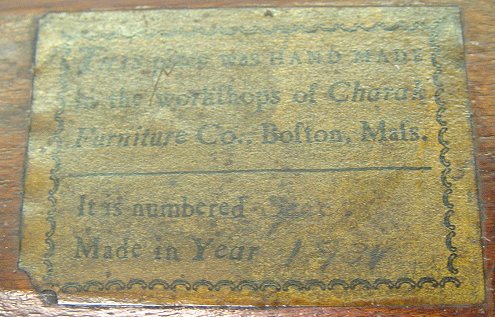 This piece was HAND MADE
in the workſhops of Charak
Furniture Co., Boſton, Maſs.
It is numbered
Made in Year 193